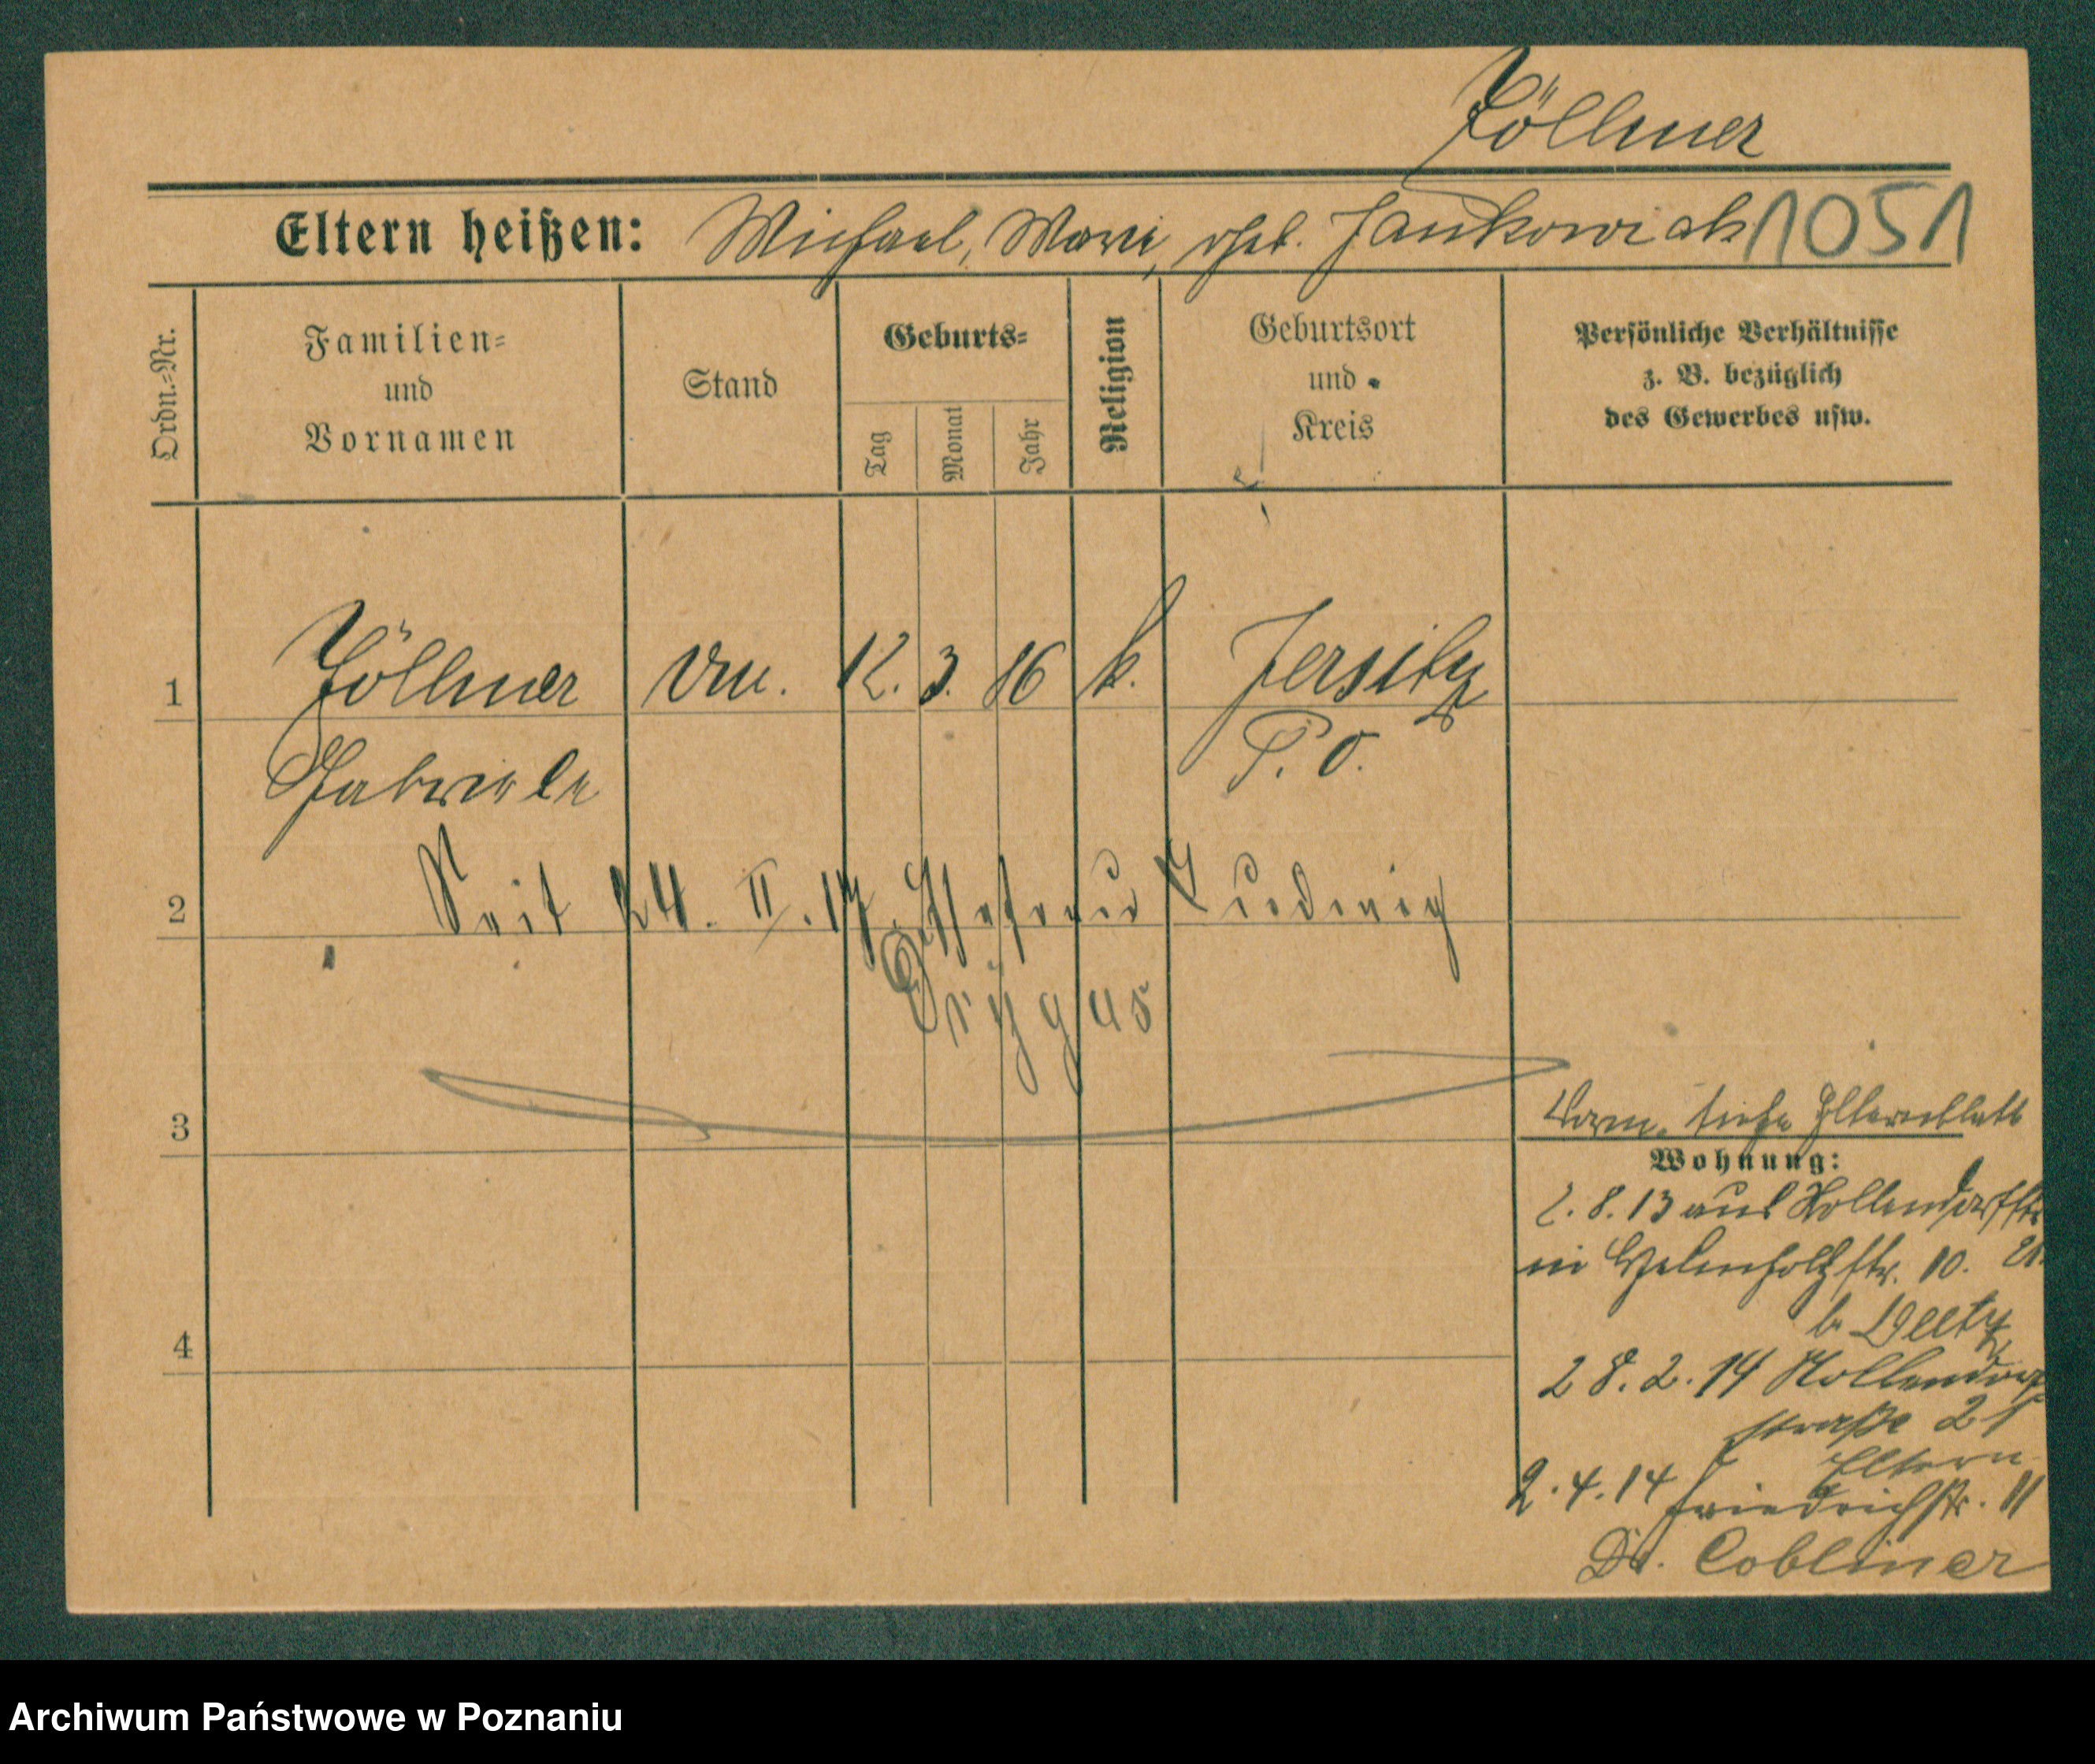 Zöllner
Eltern heißen: Michael, Marie, geb. Jankowiak 1051
Ordn.-Nr.
Familien-
und
Vornamen
Stand
Geburts-
Tag
Monat
Jahr
Religion
Geburtsort
und
Kreis
Persönliche Verhältnisse
z. B. bezüglich
des Gewerbes usw.
1 Zöllner 12. 3. k. Jersitz
Gabriele P. O.
2 Seit 24. II. 17 Ehefrau Ludwig
Drygas
3
siehe Elternblatt
Wohnung:
2. 8. 13 aus
in str. 10.
b.
4
28. 2. 14
straße
Eltern
2. 4. 14 Friedrichstr. 11
Dr. Cobliner
Archiwum Państwowe w Poznaniu